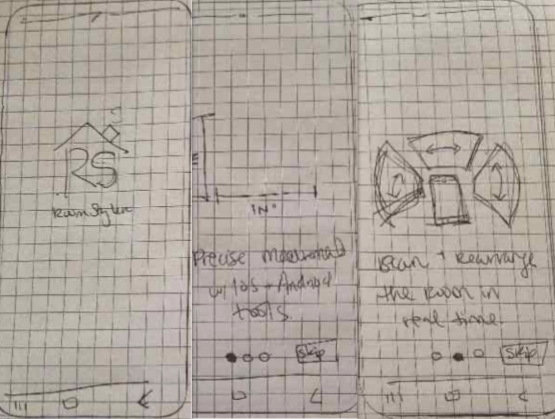 RS
Room Styler
IN"
Precise measurements
w/ ios + Android
tools
Skip
Scan + Rearrange
the Room in
real time.
Skip